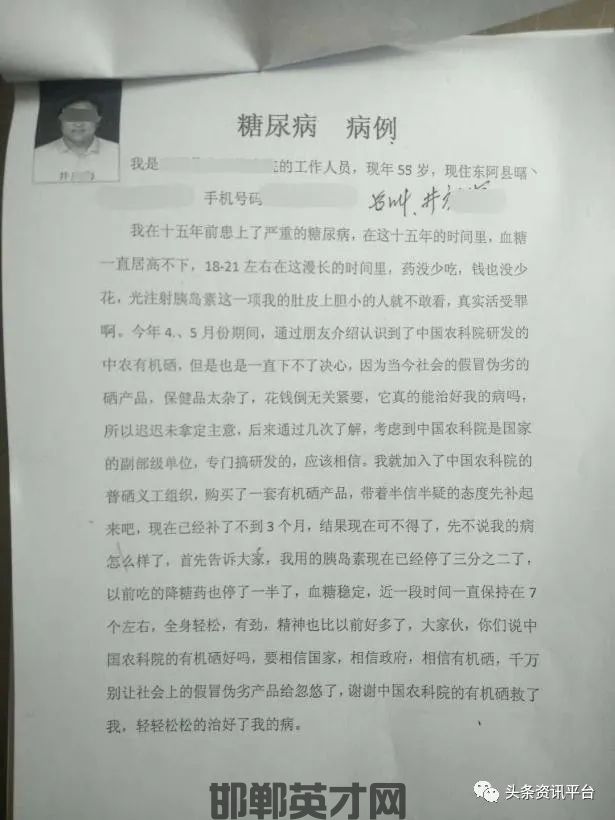 糖尿病 病例
我是 的工作人员，现年55岁，现住东阿县曙
井
手机号码
我在十五年前患上了严重的糖尿病，在这十五年的时间里，血糖
一直居高不下，18-21 左右在这漫长的时间里，药没少吃，钱也没少
花，光注射胰岛素这一项我的肚皮上胆小的人就不敢看，真实活受罪
啊。今年 4.、5 月份期间，通过朋友介绍认识到了中国农科院研发的
中农有机硒，但是也是一直下不了决心，因为当今社会的假冒伪劣的
硒产品，保健品太杂了，花钱倒无关紧要，它真的能治好我的病吗，
所以迟迟未拿定主意，后来通过几次了解，考虑到中国农科院是国家
的副部级单位，专门搞研发的，应该相信。我就加入了中国农科院的
普硒义工组织，购买了一套有机硒产品，带着半信半疑的态度先补起
来吧，现在已经补了不到 3 个月，结果现在可不得了，先不说我的病
怎么样了，首先告诉大家，我用的胰岛素现在已经停了三分之二了，
以前吃的降糖药也停了一半了，血糖稳定，近一段时间一直保持在 7
个左右，全身轻松，有劲，精神也比以前好多了，大家伙，你们说中
国农科院的有机硒好吗，要相信国家，相信政府，相信有机硒，千万
别让社会上的假冒伪劣产品给忽悠了，谢谢中国农科院的有机硒救了
我，轻轻松松的治好了我的病。
头条资讯平台
邯郸英才网